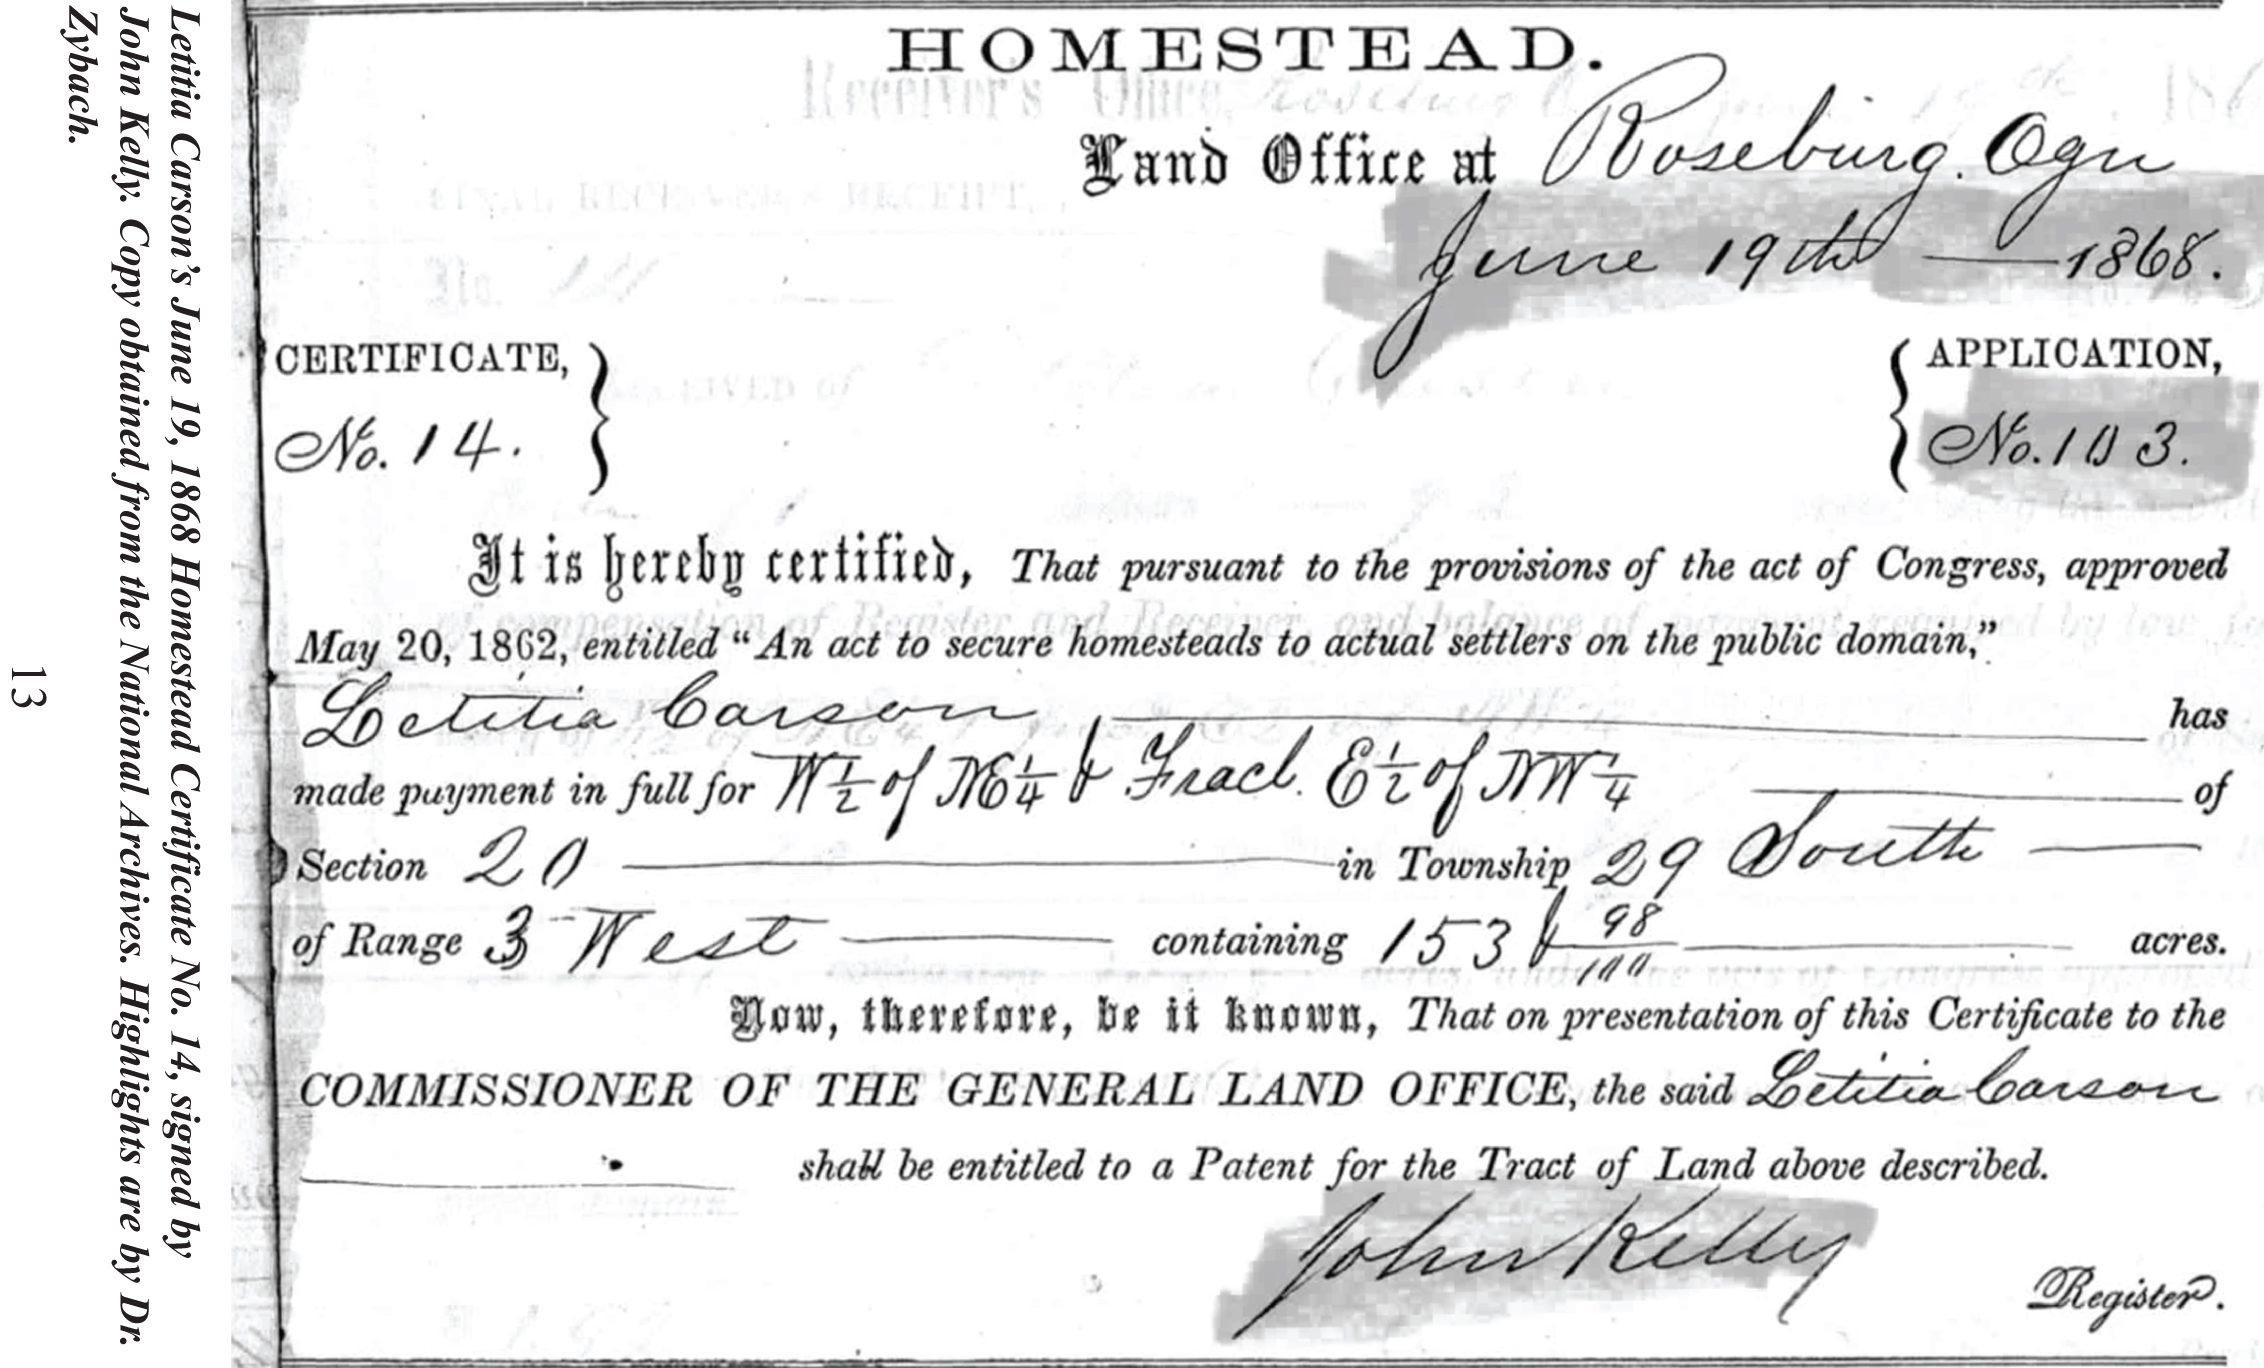 HOMESTEAD.
Land Office at Roseburg. Ogn
June 19th 1868.
CERTIFICATE,
No. 14.
APPLICATION,
No. 103.
It is hereby certified, That pursuant to the provisions of the act of Congress, approved
May 20, 1862, entitled “An act to secure homesteads to actual settlers on the public domain,”
Letitia Carson has
made payment in full for W 1/2 of NE 1/4 & Fracl. E 1/2 of NW 1/4 of
Section 20 in Township 29 South
of Range 3 West containing 153 & 98/100 acres.
Now, therefore, be it known, That on presentation of this Certificate to the
COMMISSIONER OF THE GENERAL LAND OFFICE, the said Letitia Carson
shall be entitled to a Patent for the Tract of Land above described.
John Kelly
Register.
Letitia Carson’s June 19, 1868 Homestead Certificate No. 14, signed by
John Kelly. Copy obtained from the National Archives. Highlights are by Dr.
Zybach.
13